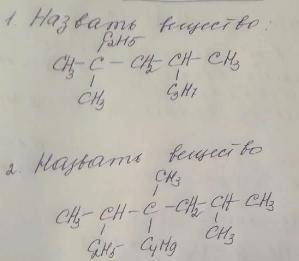 1. Назвать вещество:
C2H5
CH3 - C - CH2 - CH - CH3
CH3 C3H7
2. Назвать вещество
CH3
CH3 - CH - C - CH2 - CH - CH3
C2H5 C4H9 CH3